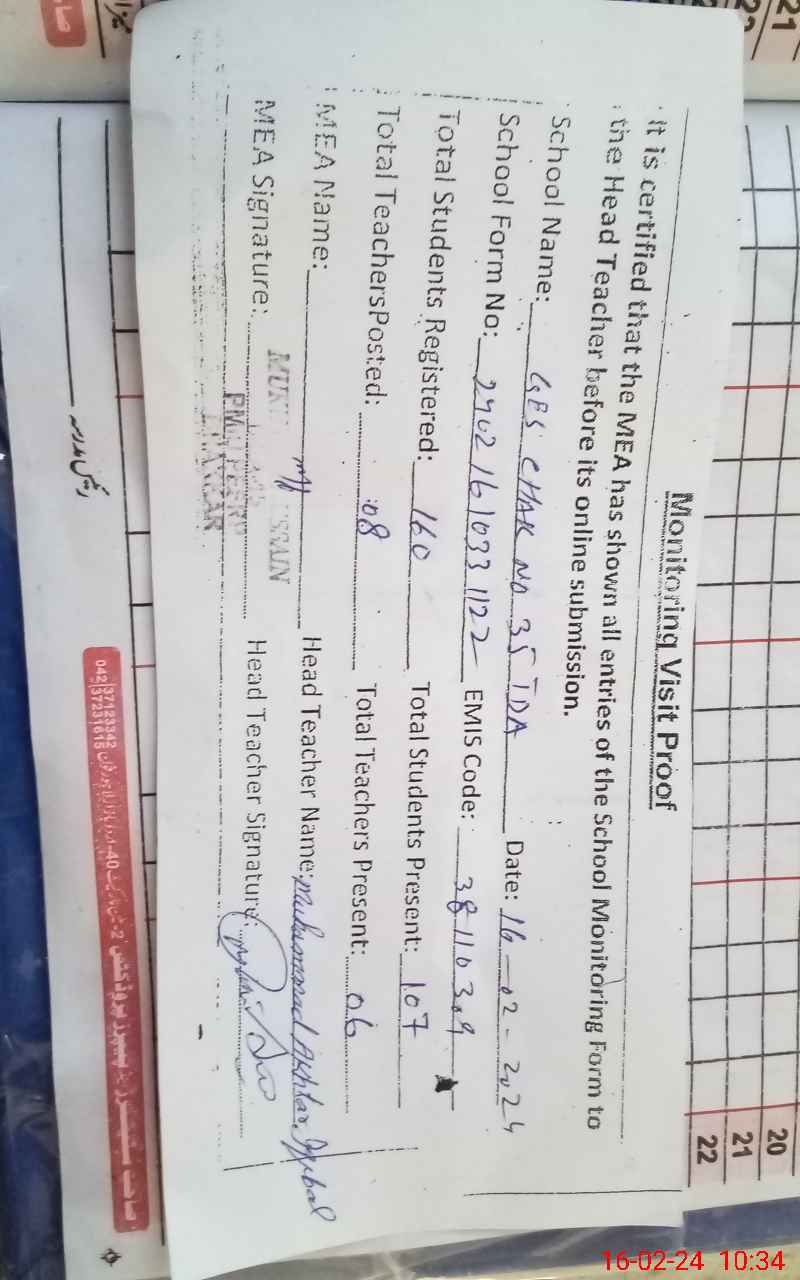 Monitoring Visit Proof
It is certified that the MEA has shown all entries of the School Monitoring Form to
the Head Teacher before its online submission.
School Name: GES CHAK NO 35 TDA Date: 16-02-2024
School Form No: 2902161033 1122 EMIS Code: 38110309
Total Students Registered: 160 Total Students Present: 107
Total TeachersPosted: 08 Total Teachers Present: 06
MEA Name: Head Teacher Name: Muhammad Akhtar Iqbal
MEA Signature: Head Teacher Signature:
20
21
22
21
22
042 37123342
37231615
16-02-24 10:34